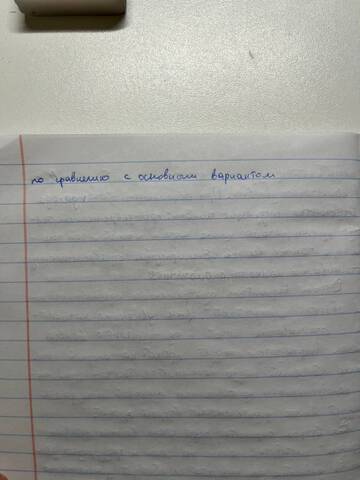 по сравнению с основным вариантом